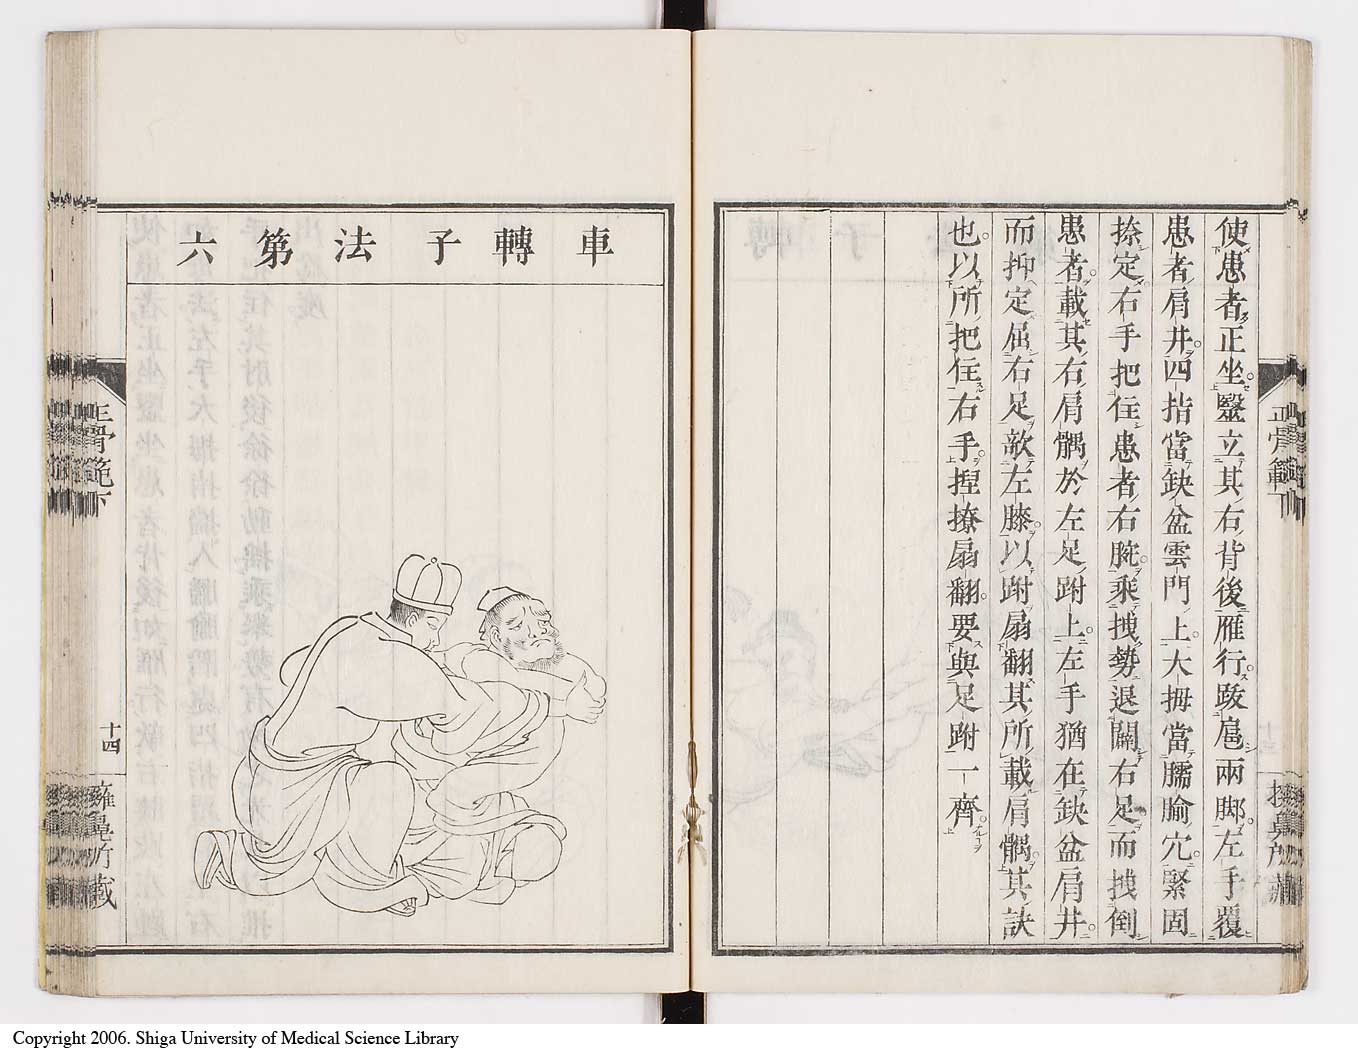 使患者正坐毉立其右背後雁行跋扈兩脚左手覆
患者肩井四指當缺盆雲門上大拇當臑腧穴緊固
捺定右手把住患者右腕乘拽勢退闢右足而拽倒
患者載其右肩髃於左足跗上左手猶在缺盆肩井
而抑定屈右足敵左膝以跗扇翻其所載肩髃其訣
也以所把住右手揑撩扇翻要與足跗一齊
正骨範下
車轉子法第六
正骨範下
十四